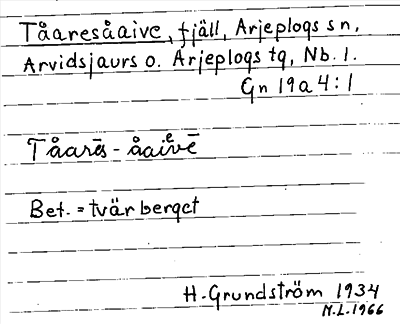 Tåaresåaive, fjäll, Arjeplogs sn,
Arvidsjaurs o. Arjeplogs tg, Nb. l.
Gn 19a4:1
Tåarēs - åaiēvē
Bet. = tvärberget
H. Grundström 1934
M.L. 1966